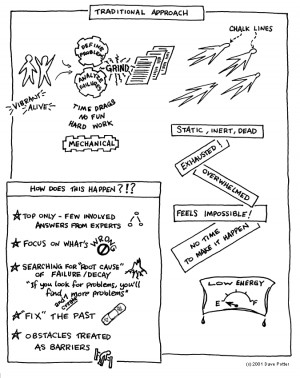 TRADITIONAL APPROACH
CHALK LINES
DEFINE
PROBLEM
ANALYZE
FAILURES
GRIND
VIBRANT
ALIVE
TIME DRAGS
NO FUN
HARD WORK
MECHANICAL
STATIC, INERT, DEAD
EXHAUSTED!
OVERWHELMED
FEELS IMPOSSIBLE!
NO TIME
TO MAKE IT HAPPEN
LOW ENERGY
E F
HOW DOES THIS HAPPEN?!?
TOP ONLY - FEW INVOLVED
ANSWERS FROM EXPERTS
FOCUS ON WHAT'S WRONG
SEARCHING FOR "ROOT CAUSE"
OF FAILURE/DECAY
"If you look for problems, you'll
find more problems"
"FIX" THE PAST
OBSTACLES TREATED
AS BARRIERS
(c) 2001 Dave Potter